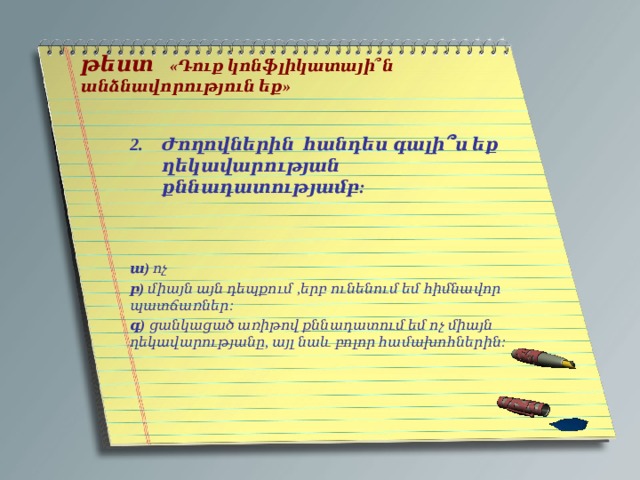 թեստ «Դուք կոնֆլիկատայի՞ն
անձնավորություն եք»
2. Ժողովներին հանդես գալի՞ս եք
ղեկավարության
քննադատությամբ:
ա) ոչ
բ) միայն այն դեպքում ,երբ ունենում եմ հիմնավոր
պատճառներ:
գ) ցանկացած առիթով քննադատում եմ ոչ միայն
ղեկավարությանը, այլ նաև բոլոր համախոհներին: